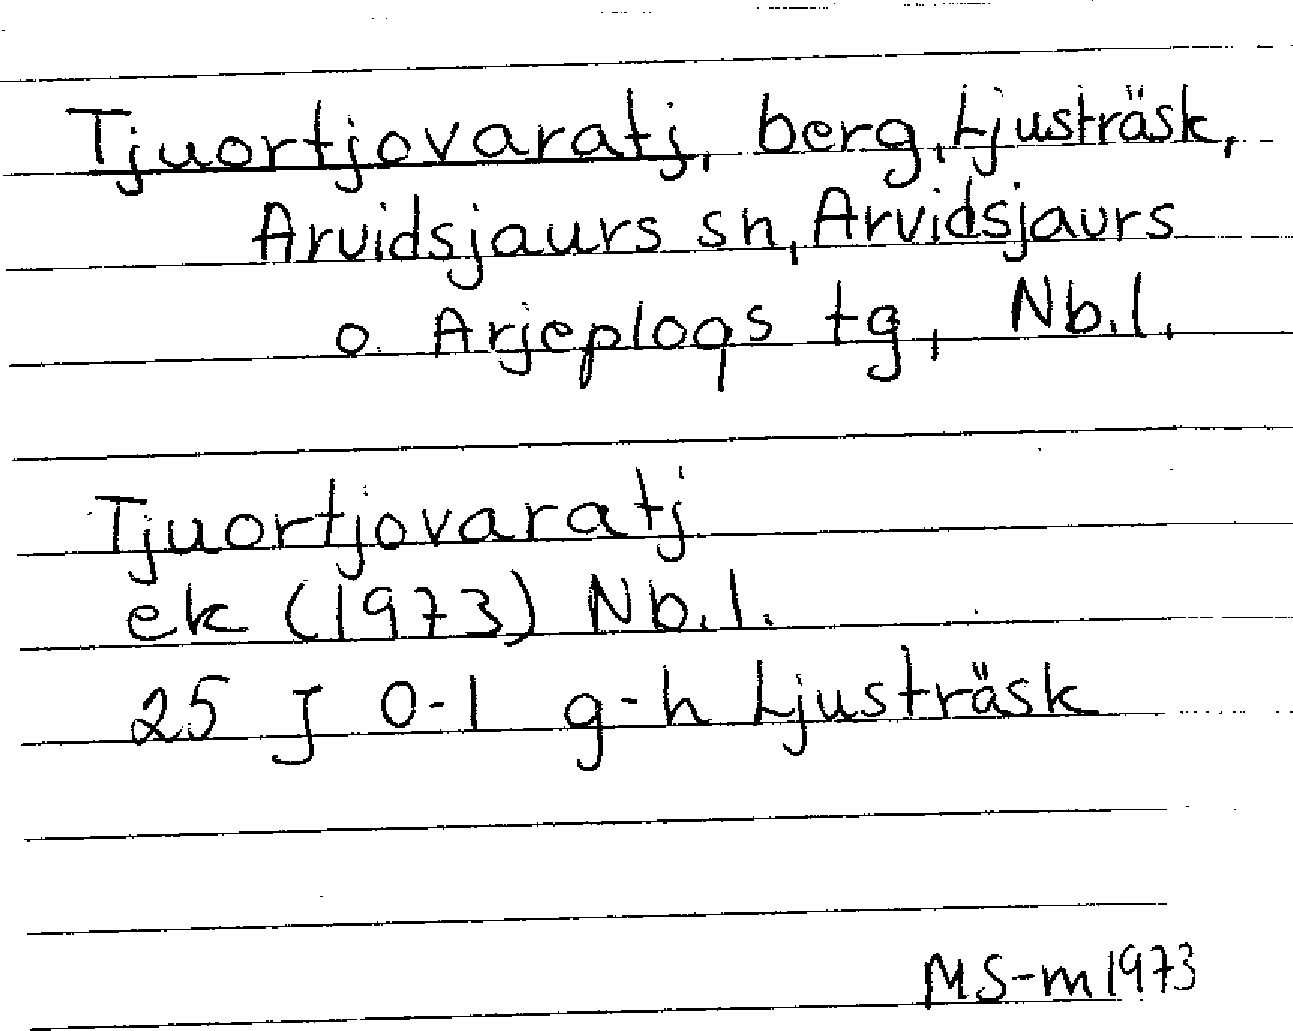 Tjuortjovaratj, berg, Ljusträsk,
Arvidsjaurs sn, Arvidsjaurs
o. Arjeplogs tg, Nb.l.
Tjuortjovaratj
ek (1973) Nb.l.
25 J 0-1 g-h Ljusträsk
MS-m 1973